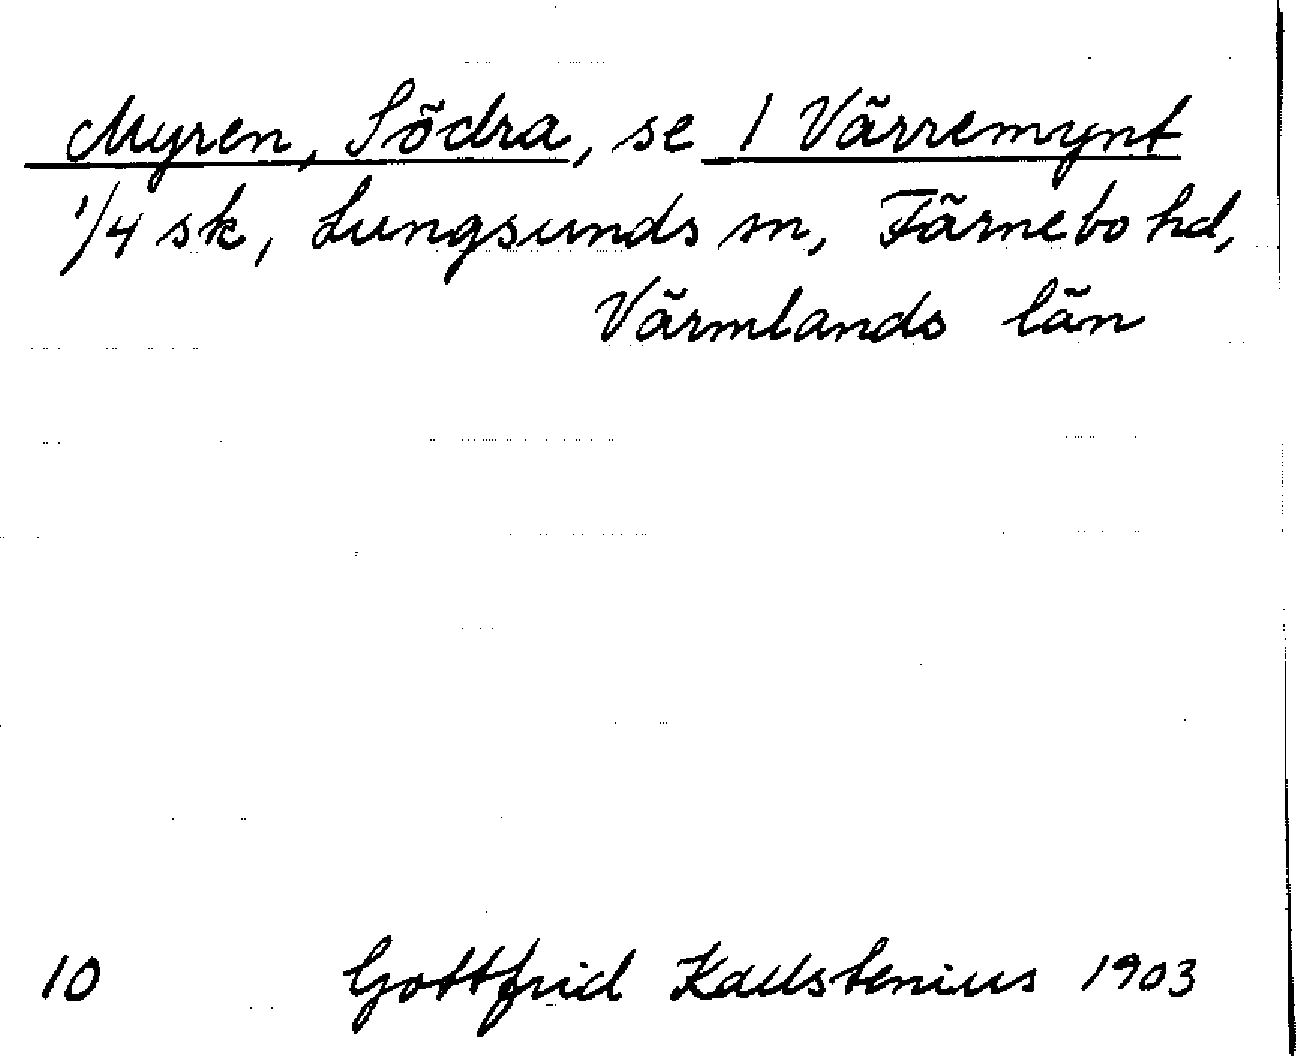 Myren, Södra, se 1 Värremynt
1/4 sk, Lungsunds sn, Färnebo hd,
Värmlands län
10 Gottfrid Kallstenius 1903